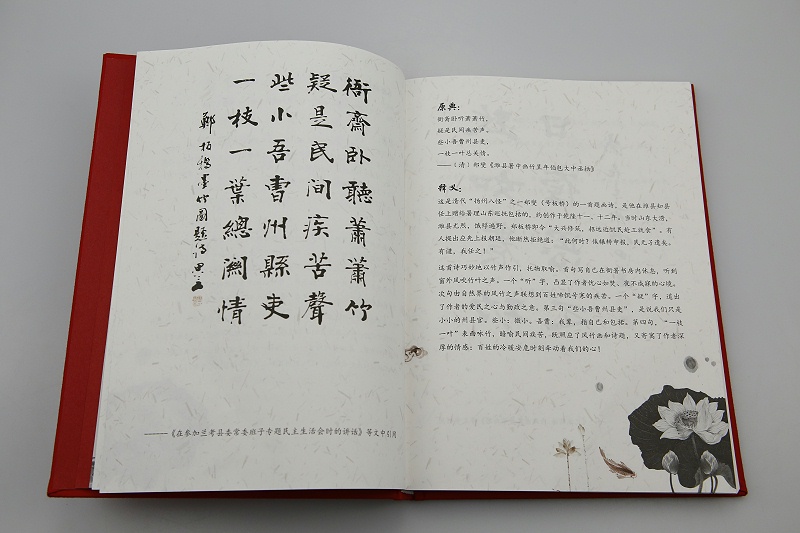 衙齋卧聽蕭蕭竹
疑是民間疾苦聲
些小吾曹州縣吏
一枝一葉總關情
鄭板橋墨竹圖題詩
———《在参加兰考县委常委班子专题民主生活会时的讲话》等文中引用
原典:
衙斋卧听萧萧竹,
疑是民间疾苦声。
些小吾曹州县吏,
一枝一叶总关情。
——（清）郑燮《潍县署中画竹呈年伯包大中丞括》
释义:
这是清代“扬州八怪”之一郑燮（号板桥）的一首题画诗，是他在潍县知县
任上赠给署理山东巡抚包括的，约创作于乾隆十一、十二年。当时山东大荒，
潍县尤烈，饿殍遍野。郑板桥即令“大兴修筑，招远近饥民赴工就食”。有
人提出应先上报朝廷，他断然拒绝道：“此何时？俟辗转申报，民无孑遗矣。
有谴，我任之！”
这首诗巧妙地以竹声作引，托物取喻。首句写自己在衙署书房内休息，听到
窗外风吹竹叶之声。一个“听”字，凸显了作者忧心如焚、夜不成寐的心境。
次句由自然界的风竹之声联想到百姓啼饥号寒的疾苦。一个“疑”字，道出
了作者的爱民之心与勤政之意。第三句“些小吾曹州县吏”，是说我们只是
小小的州县官。些小：微小。吾曹：我辈，指自己和包括。第四句，“一枝
一叶”表面咏竹，暗喻民间疾苦，既照应了风竹画和诗题，又寄寓了作者深
厚的情感：百姓的冷暖安危时刻牵动着我们的心！